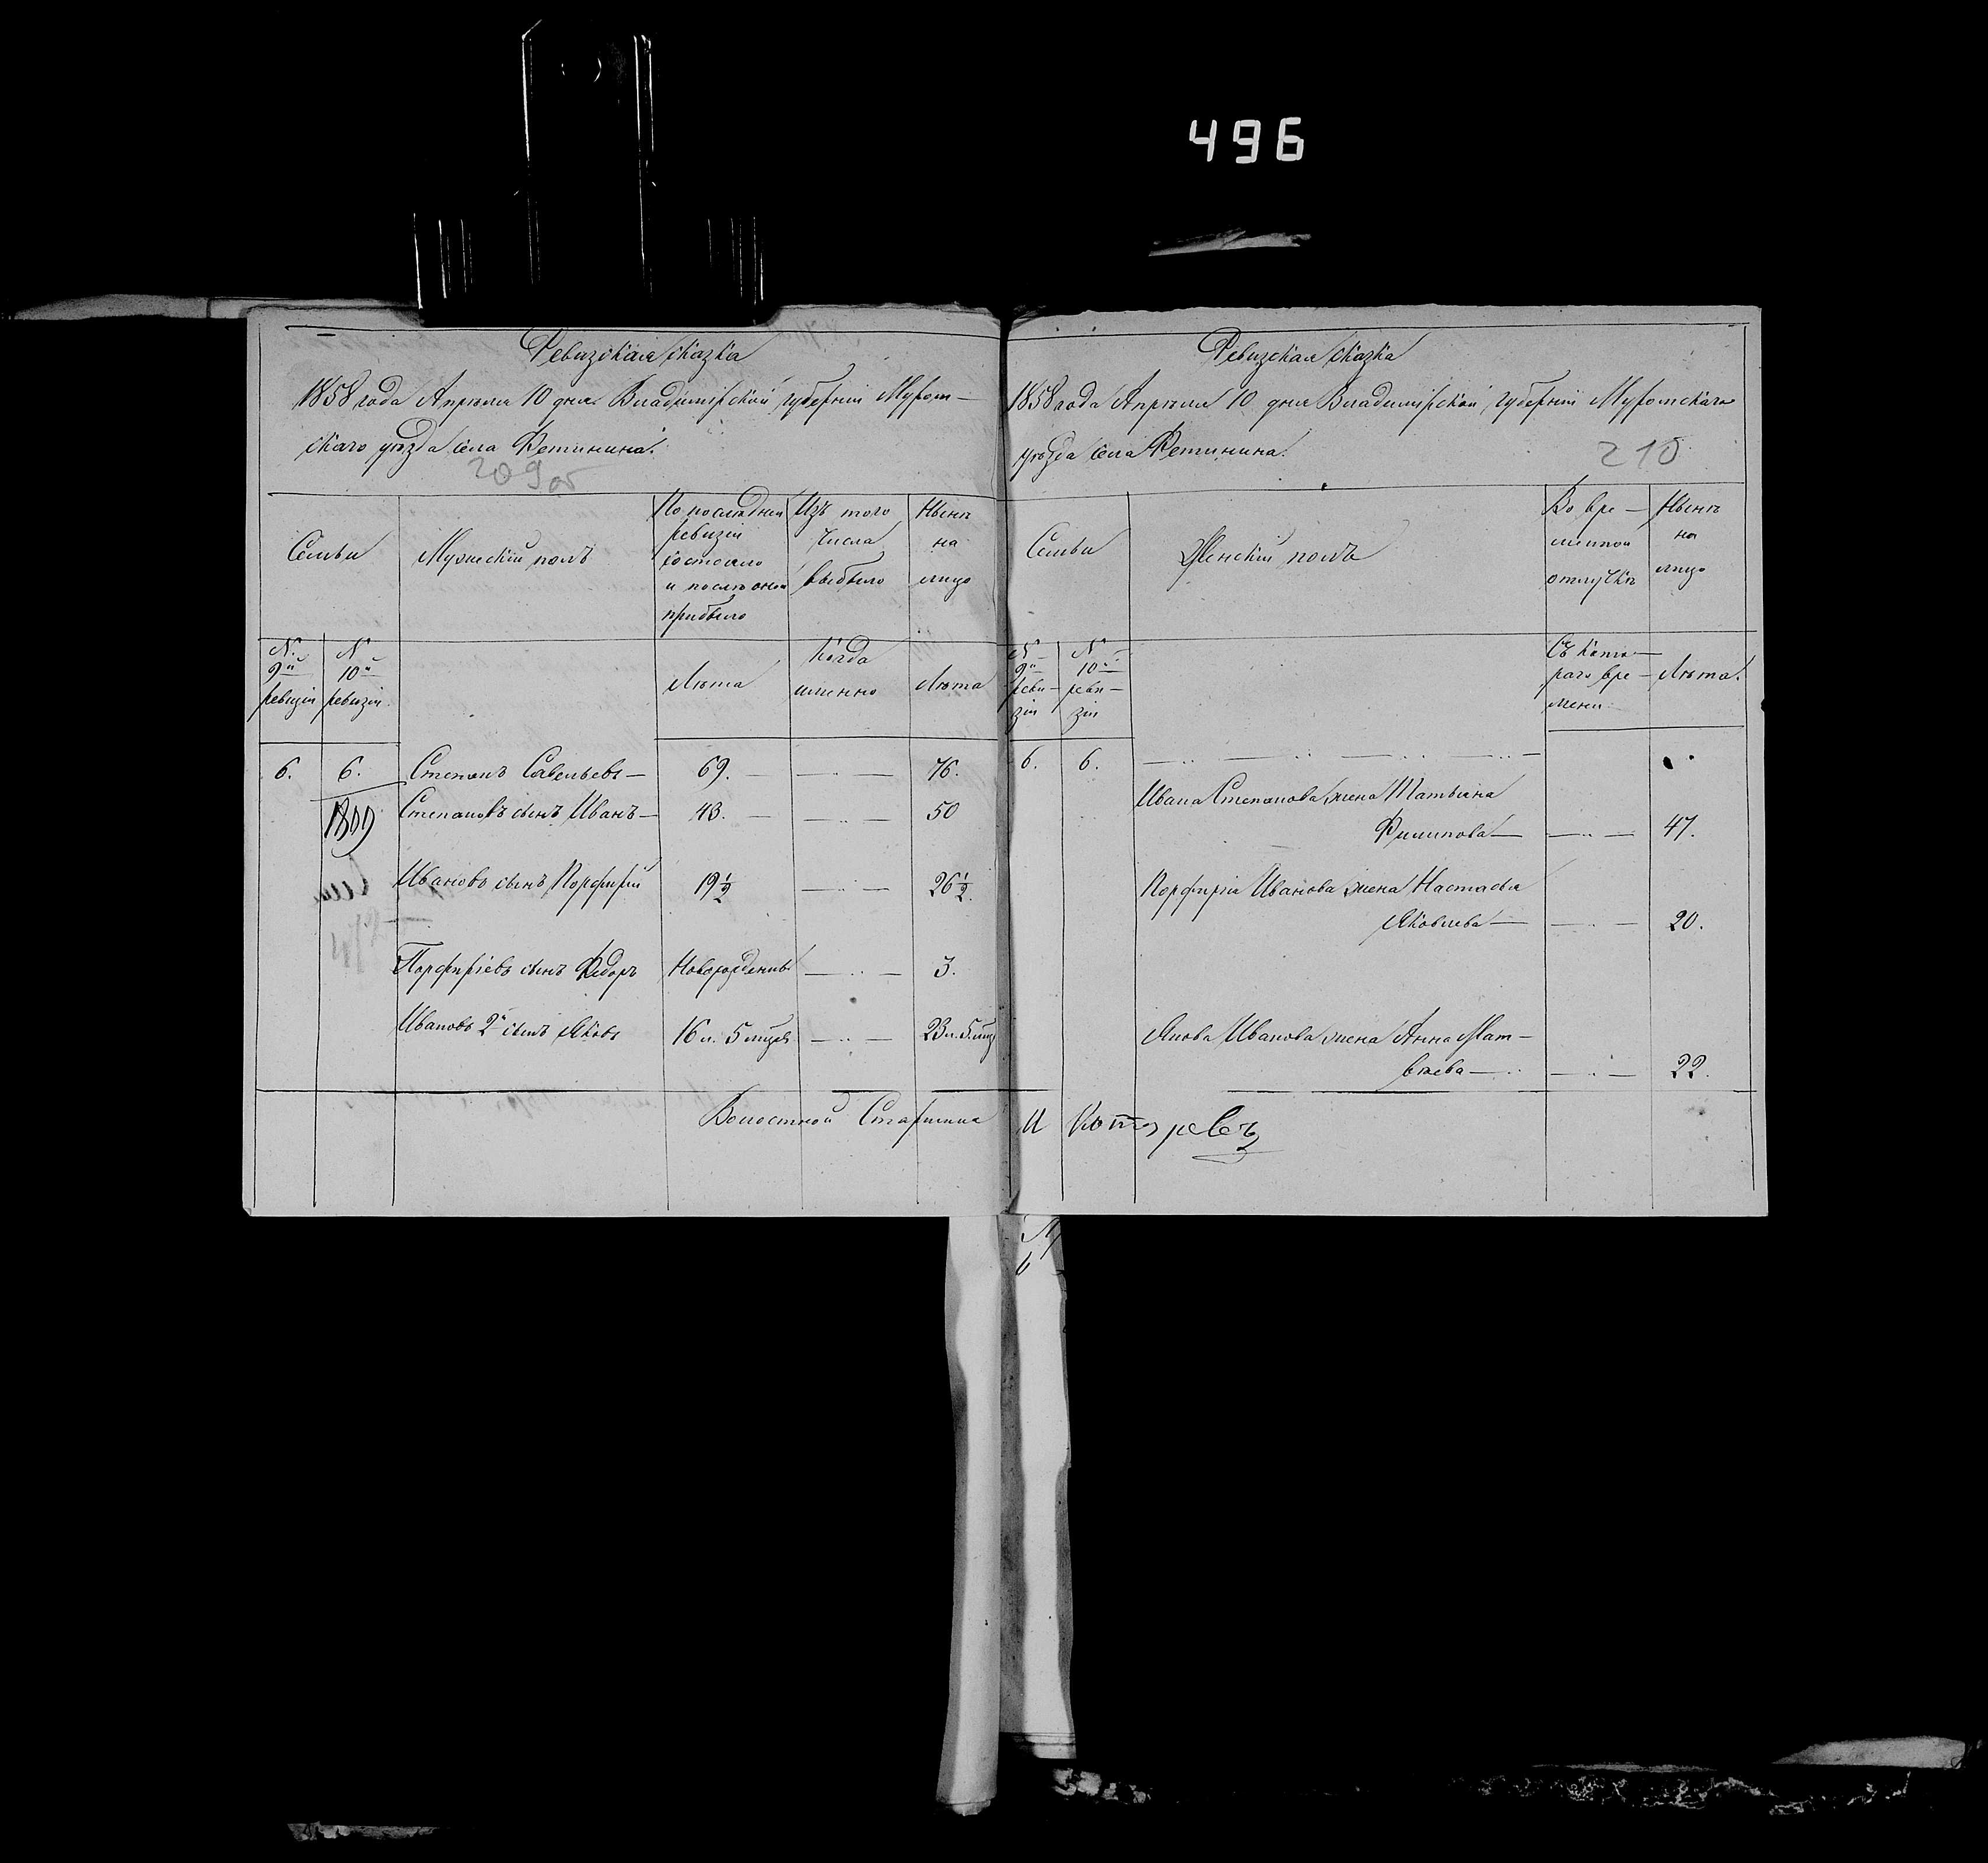 496
Ревизская сказка
1858 года Апреля 10 дня Владимірской губерніи Муром-
скаго уѣзда села Фетинина.
209 об
Семьи
Мужескій полъ
По последней
ревизіи
состояло
и послѣ оной
прибыло
Изъ того
числа
выбыло
Нынѣ
на
лицо
№
9й
ревизіи
№
10й
ревизіи
Лѣта
Когда
именно
Лѣта
6. 6. Степанъ Савельевъ — 69. — — 76.
Степановъ сынъ Иванъ — 43. — — 50
Ивановъ сынъ Порфирій 19½ — 26½.
Порфиріевъ сынъ Федоръ Новорожденный — 3.
Ивановъ 2й сынъ Яковъ 16 л. 5 мцев — 23 л. 5 мц
Волостной Старшина
Ревизская сказка
1858 года Апреля 10 дня Владимірской губерніи Муромскаго
уѣзда села Фетинина.
210
Семьи
Женскій полъ
Во вре-
менной
отлучкѣ
Нынѣ
на
лицо
№
9й
реви-
зіи
№
10й
реви-
зіи
Съ кото-
раго вре-
мени
Лѣта.
6. 6.
Ивана Степанова жена Татьяна
Филипова — — 47.
Порфирія Иванова жена Настасья
Яковлева — — 20.
Якова Иванова жена Анна Мат-
вѣева — — 22.
И